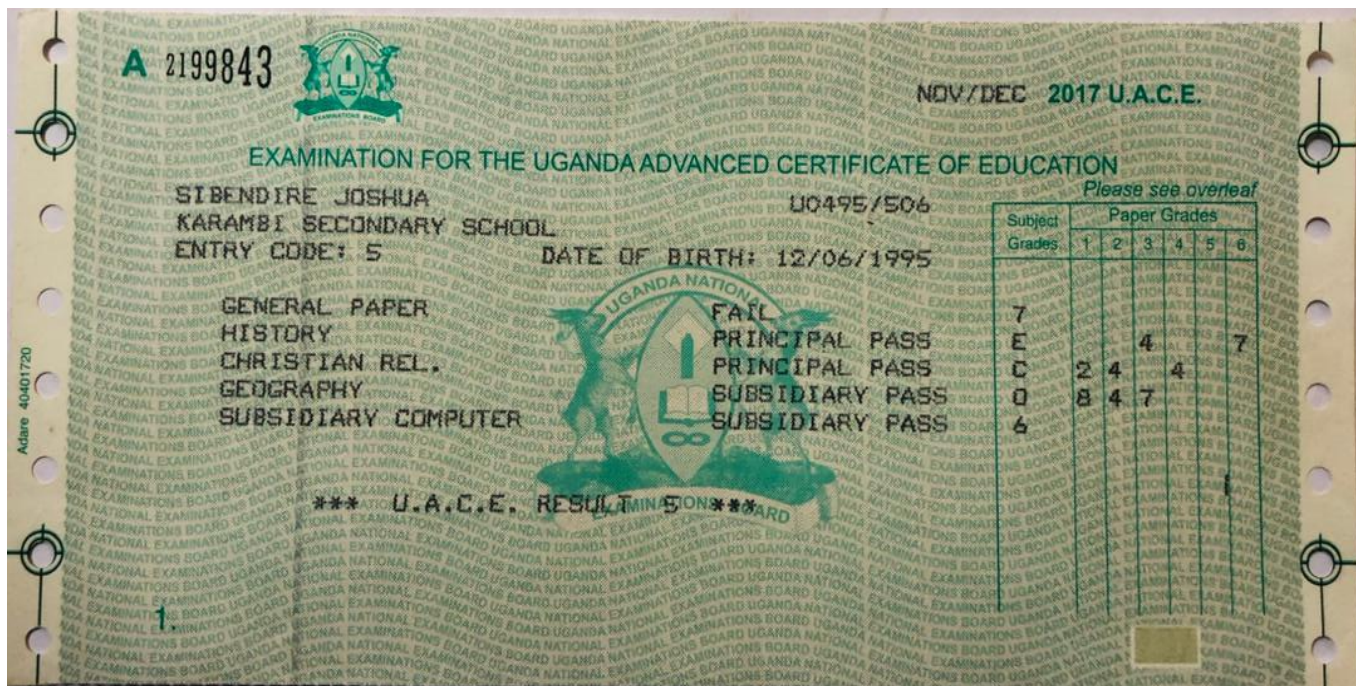 A 2199843
UGANDA NATIONAL
EXAMINATIONS BOARD
NOV/DEC 2017 U.A.C.E.
EXAMINATION FOR THE UGANDA ADVANCED CERTIFICATE OF EDUCATION
Please see overleaf
SIBENDIRE JOSHUA U0495/506
KARAMBI SECONDARY SCHOOL
ENTRY CODE: 5 DATE OF BIRTH: 12/06/1995
Subject Grades Paper Grades
1 2 3 4 5 6
GENERAL PAPER FAIL 7
HISTORY PRINCIPAL PASS E 4 7
CHRISTIAN REL. PRINCIPAL PASS C 2 4 4
GEOGRAPHY SUBSIDIARY PASS O 8 4 7
SUBSIDIARY COMPUTER SUBSIDIARY PASS 6
UGANDA NATIONAL
*** U.A.C.E. RESULT 5 ***
EXAMINATIONS BOARD
1.
Adare 40401720